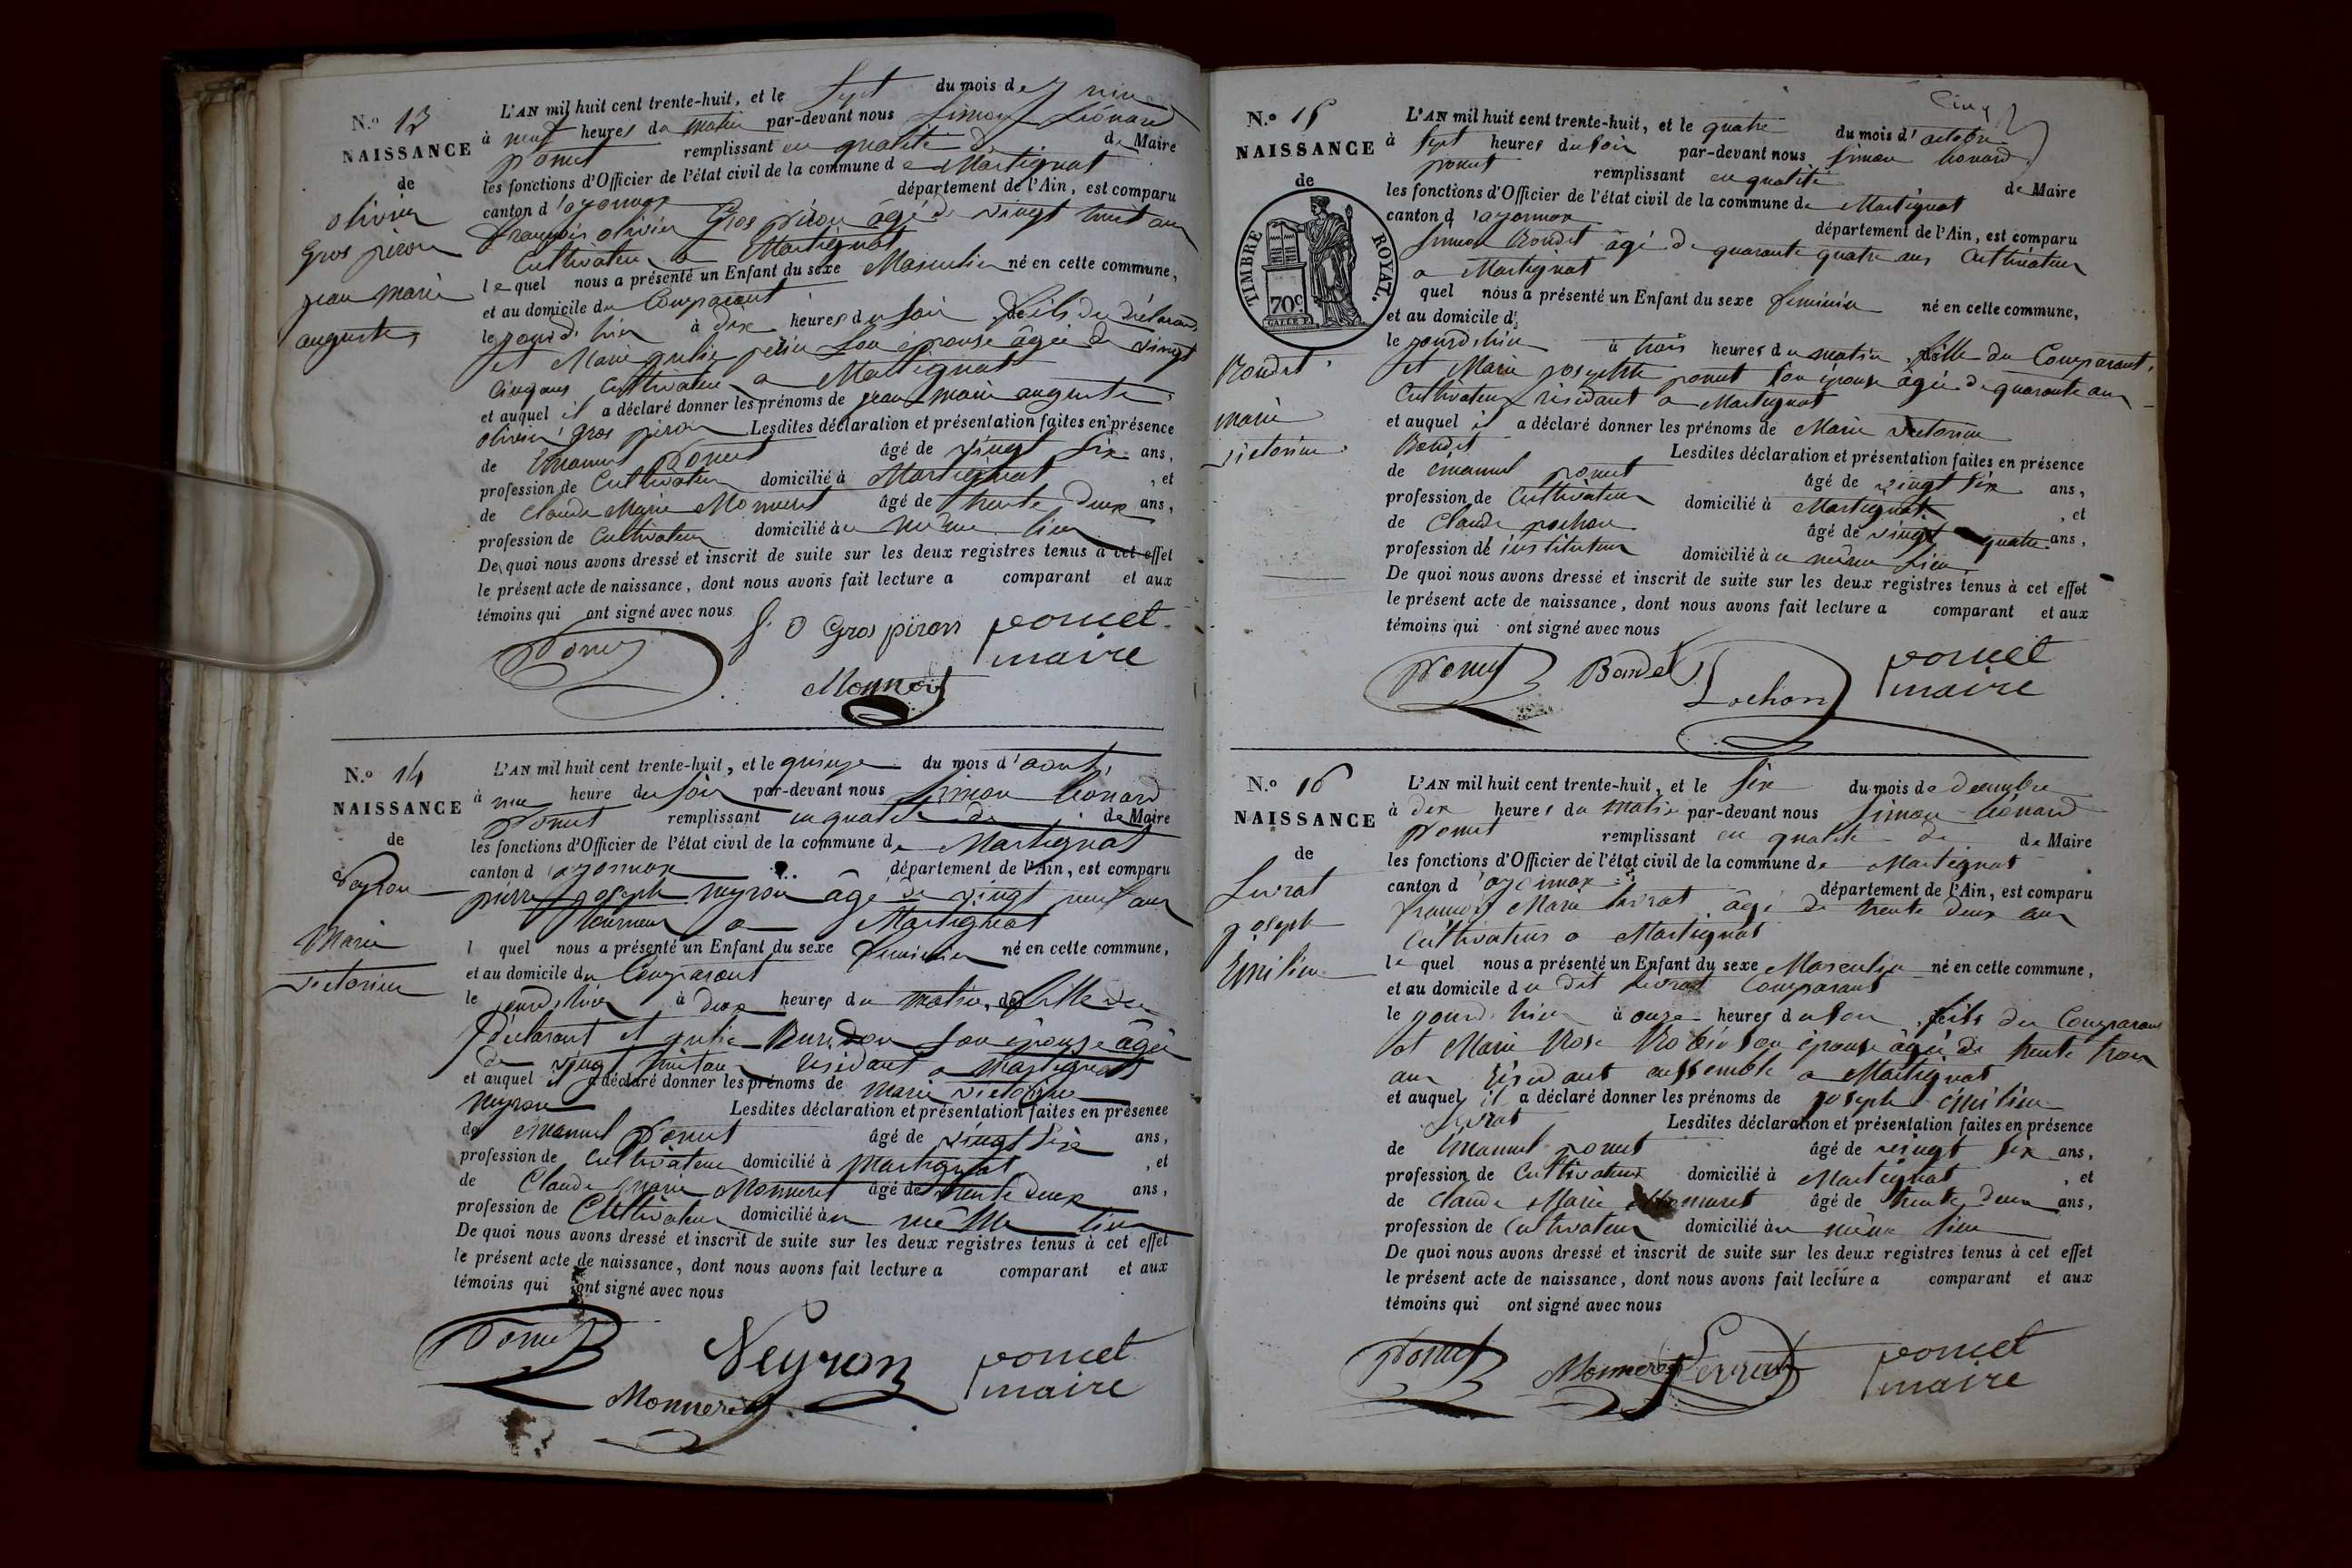 N.º 13
NAISSANCE
de
olivier
Gros piron
jean marie
auguste
L'AN mil huit cent trente-huit, et le Sept du mois de juin
à neuf heures du matin par-devant nous Simon Léonard
Poncet remplissant en qualité de de Maire
les fonctions d'Officier de l'état civil de la commune de Martignat
canton d'oyonnax département de l'Ain, est comparu
françois olivier Gros piron âgé de vingt huit ans
Cultivateur a Martignat
lequel nous a présenté un Enfant du sexe Masculin né en cette commune,
et au domicile du Comparant
le jourd'hier à dix heures du soir, fils du déclarant
et Marie julie son épouse âgée de vingt
cinq ans Cultivateur a Martignat
et auquel il a déclaré donner les prénoms de jean marie auguste
olivier Gros piron Lesdites déclaration et présentation faites en présence
de émanuel Poncet âgé de vingt six ans,
profession de Cultivateur domicilié à Martignat, et
de Claude Marie Monneret âgé de trente deux ans,
profession de Cultivateur domicilié au même lieu
De quoi nous avons dressé et inscrit de suite sur les deux registres tenus à cet effet
le présent acte de naissance, dont nous avons fait lecture a comparant et aux
témoins qui ont signé avec nous
Poncet f. O Gros piron poncet
maire
Monneret
N.º 14
NAISSANCE
de
Neyron
Marie
victorine
L'AN mil huit cent trente-huit, et le quinze du mois d'aout,
à une heure du soir par-devant nous Simon Léonard
Poncet remplissant en qualité de de Maire
les fonctions d'Officier de l'état civil de la commune de Martignat
canton d'oyonnax département de l'Ain, est comparu
pierre joseph neyron âgé de vingt neuf ans
tourneur a Martignat
l quel nous a présenté un Enfant du sexe feminin né en cette commune,
et au domicile du Comparant
le jourd'hui à deux heures du matin, fille du
déclarant et julie Buridon son épouse âgée
de vingt huit ans résidant a Martignat
et auquel il a déclaré donner les prénoms de marie victorine
neyron Lesdites déclaration et présentation faites en présence
de émanuel Poncet âgé de vingt six ans,
profession de cultivateur domicilié à Martignat, et
de Claude marie Monneret âgé de trente deux ans,
profession de Cultivateur domicilié au même lieu
De quoi nous avons dressé et inscrit de suite sur les deux registres tenus à cet effet
le présent acte de naissance, dont nous avons fait lecture a comparant et aux
témoins qui ont signé avec nous
Poncet Neyron poncet
maire
Monneret
Cinq
N.º 15
NAISSANCE
de
TIMBRE ROYAL.
70c.
Bondet
marie
victorine
L'AN mil huit cent trente-huit, et le quatre du mois d'octobre
à sept heures du soir par-devant nous Simon Léonard
poncet remplissant en qualité de Maire
les fonctions d'Officier de l'état civil de la commune de Martignat
canton d'oyonnax département de l'Ain, est comparu
Simon Bondet âgé de quarante quatre ans Cultivateur
a Martignat
quel nous a présenté un Enfant du sexe feminin né en cette commune,
et au domicile d
le jourd'hui à trois heures du matin, fille du Comparant,
et Marie josephte poncet son épouse âgée de quarante ans
Cultivateur résidant a Martignat
et auquel il a déclaré donner les prénoms de Marie victorine
Bondet Lesdites déclaration et présentation faites en présence
de émanuel poncet âgé de vingt six ans,
profession de Cultivateur domicilié à Martignat, et
de Claude pochon âgé de vingt quatre ans,
profession de instituteur domicilié au même lieu
De quoi nous avons dressé et inscrit de suite sur les deux registres tenus à cet effet
le présent acte de naissance, dont nous avons fait lecture a comparant et aux
témoins qui ont signé avec nous
Poncet Bondet Pochon poncet
maire
N.º 16
NAISSANCE
de
Livrat
joseph
Émilien
L'AN mil huit cent trente-huit, et le six du mois de decembre
à dix heures du matin par-devant nous Simon Léonard
poncet remplissant en qualité de de Maire
les fonctions d'Officier de l'état civil de la commune de Martignat
canton d'oyonnax département de l'Ain, est comparu
françois Marie Livrat âgé de trente deux ans
Cultivateur a Martignat
le quel nous a présenté un Enfant du sexe Masculin né en cette commune,
et au domicile du dit Livrat Comparant
le jourd'hier à onze heures du soir, fils du Comparant
et Marie Rose son épouse âgée de trente trois
ans résidant enssemble a Martignat
et auquel il a déclaré donner les prénoms de joseph émilien
Livrat Lesdites déclaration et présentation faites en présence
de émanuel poncet âgé de vingt six ans,
profession de Cultivateur domicilié à Martignat, et
de Claude Marie Monneret âgé de trente deux ans,
profession de Cultivateur domicilié au même lieu
De quoi nous avons dressé et inscrit de suite sur les deux registres tenus à cet effet
le présent acte de naissance, dont nous avons fait lecture a comparant et aux
témoins qui ont signé avec nous
Poncet Monneret Livrat poncet
maire